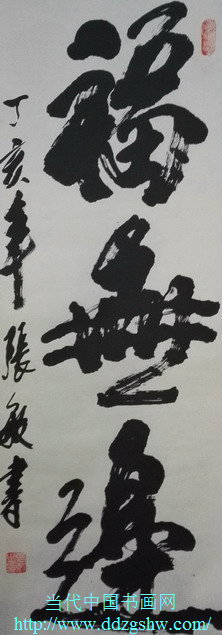 福無
丁亥年張敏書
当代中国书画网
http://www.ddzgshw.com